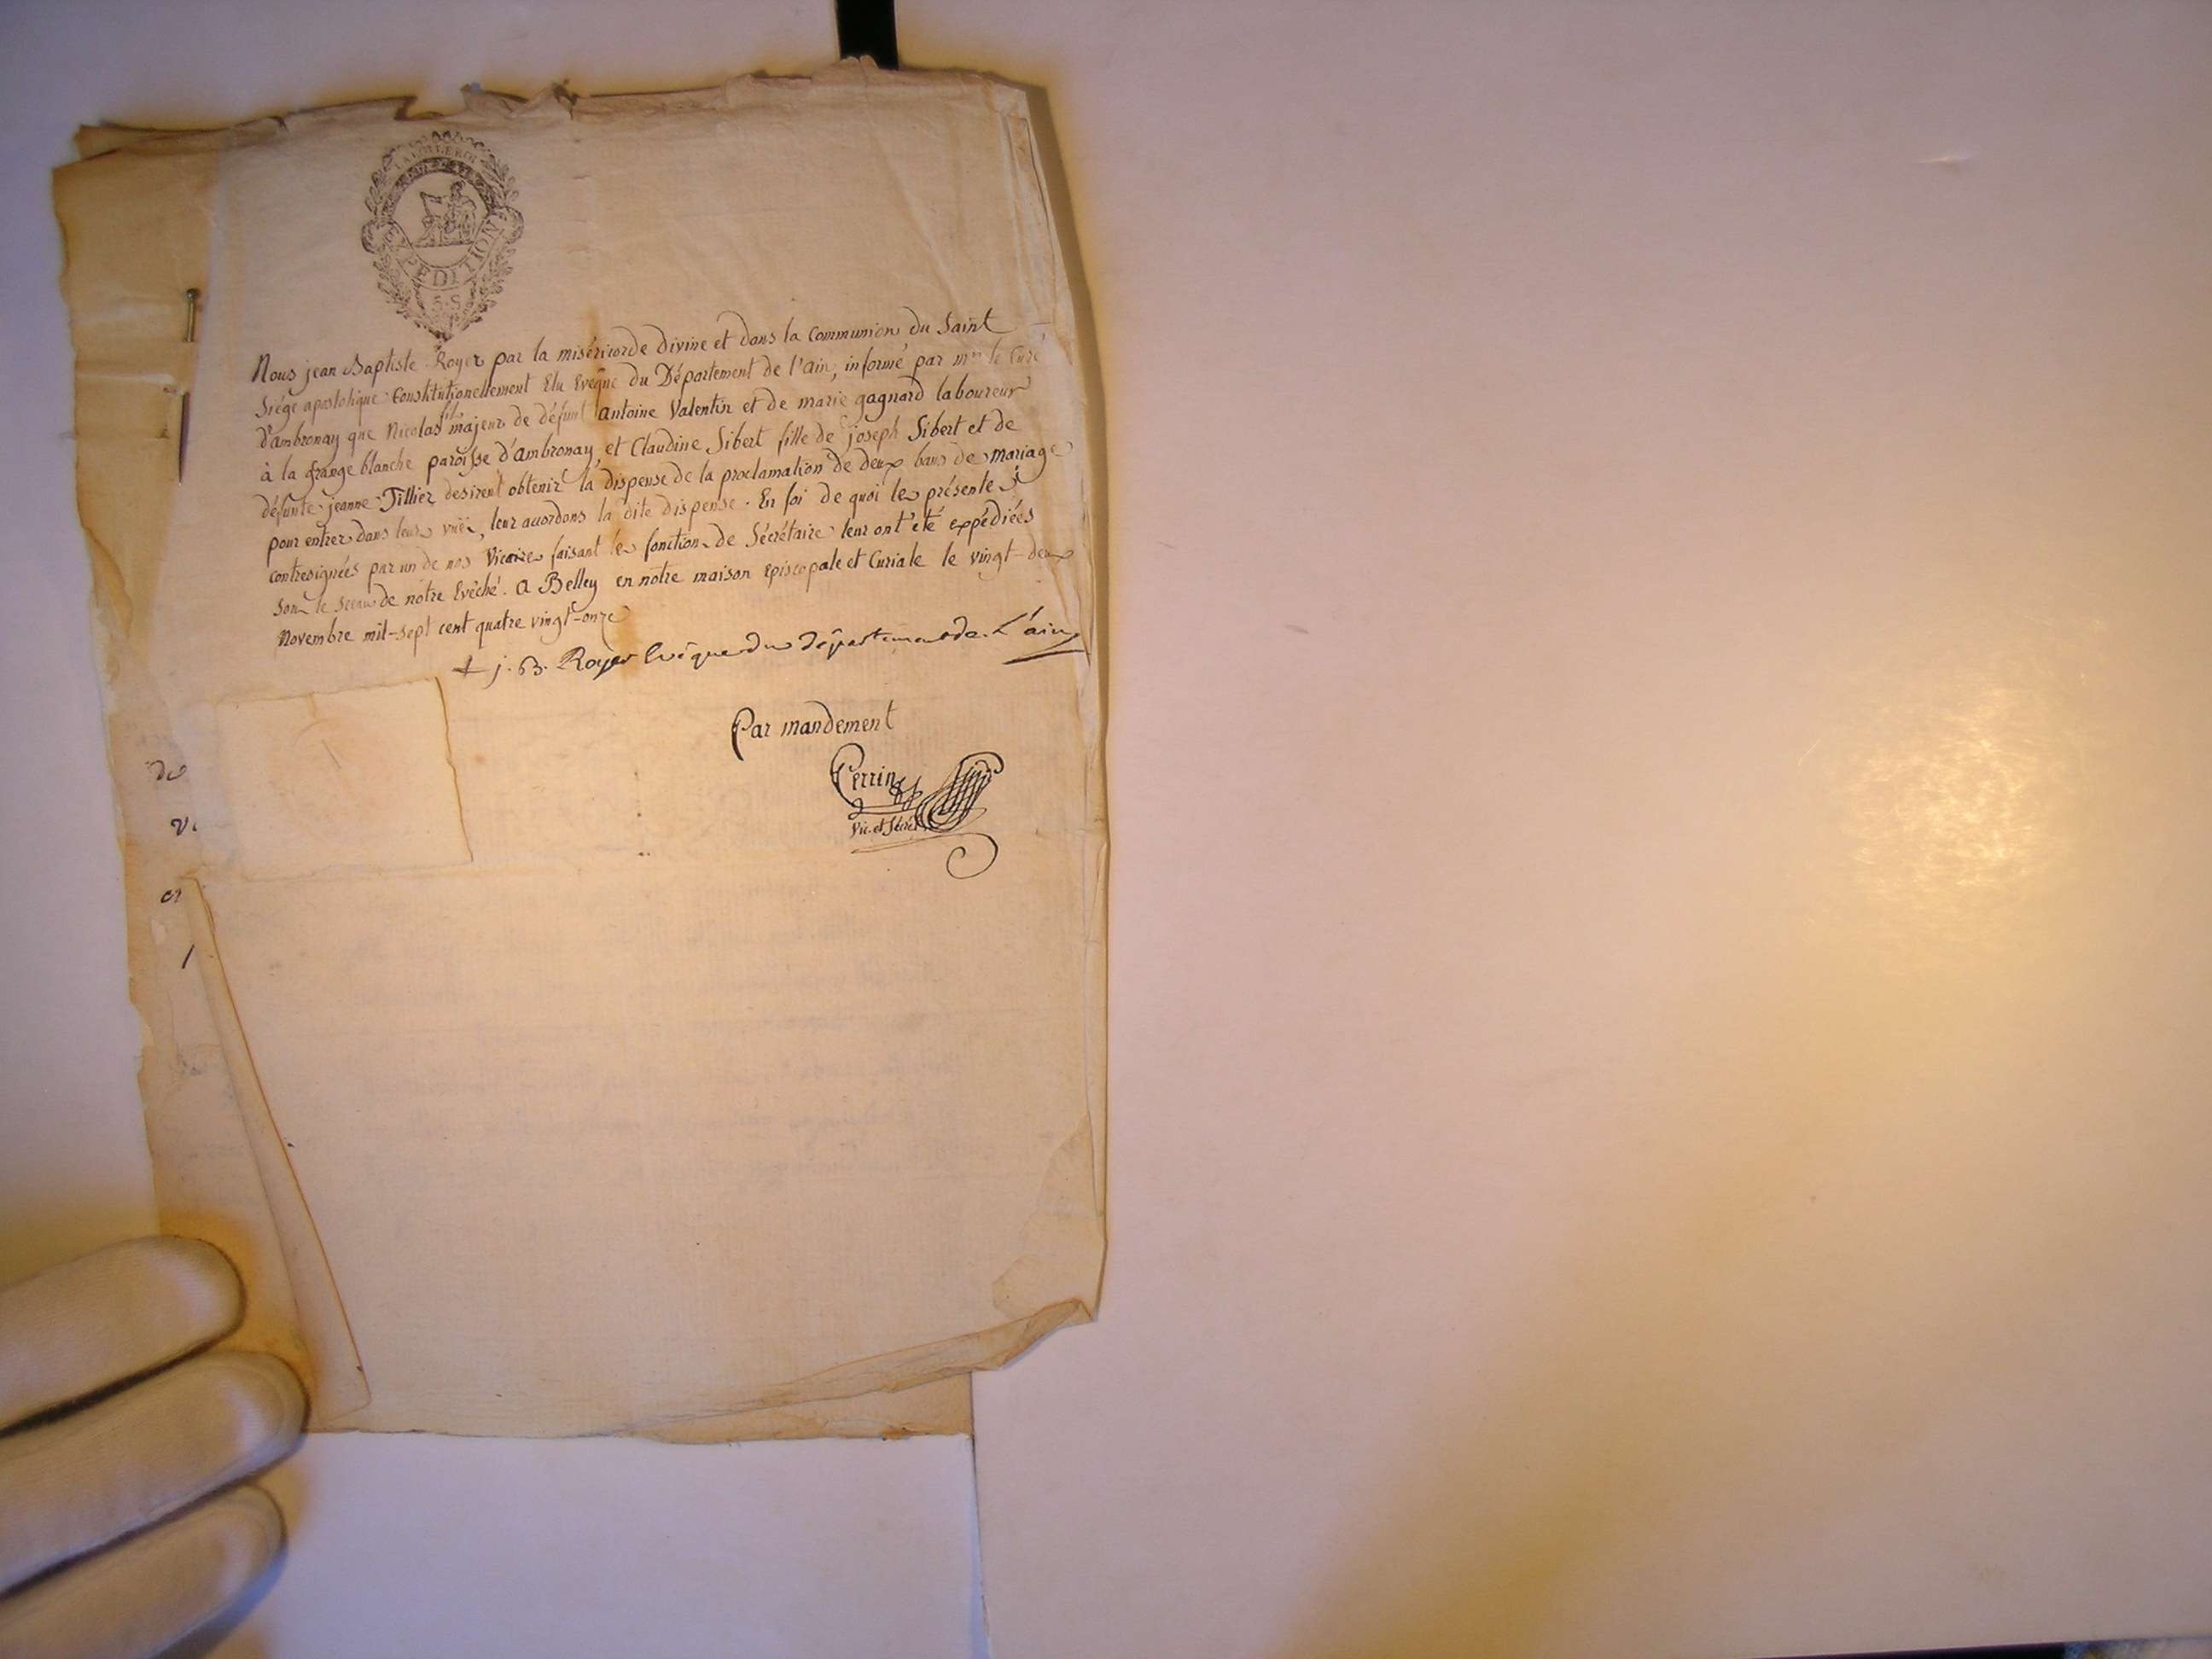 LA LOI LE ROI
EXPEDITION
5. S
Nous jean Baptiste Royer par la miséricorde divine et dans la Communion du Saint
Siége apostolique Constitutionellement Elu Evêque du Département de l'ain, informé par mr le Curé
d'ambronay que Nicolas fils majeur de défunt antoine Valentin et de marie gagnard laboureur
à la grange blanche paroisse d'Ambronay, et Claudine Sibert fille de joseph Sibert et de
défunte jeanne Tillier desirent obtenir la dispense de la proclamation de deux bans de mariage
pour entrer dans leurs vuës, leur accordons la dite dispense. En foi de quoi les présentes
contresignées par un de nos Vicaires faisant les fonctions de Sécrétaire leur ont été expédiées
sous le sceau de notre Evêché. a Belley en notre maison Episcopale et Curiale le vingt-deux
Novembre mil-sept cent quatre vingt-onze
+ j. B. Royer Evêque du département de L'ain
Par mandement
Perrin
Vic. et Sécré.
de